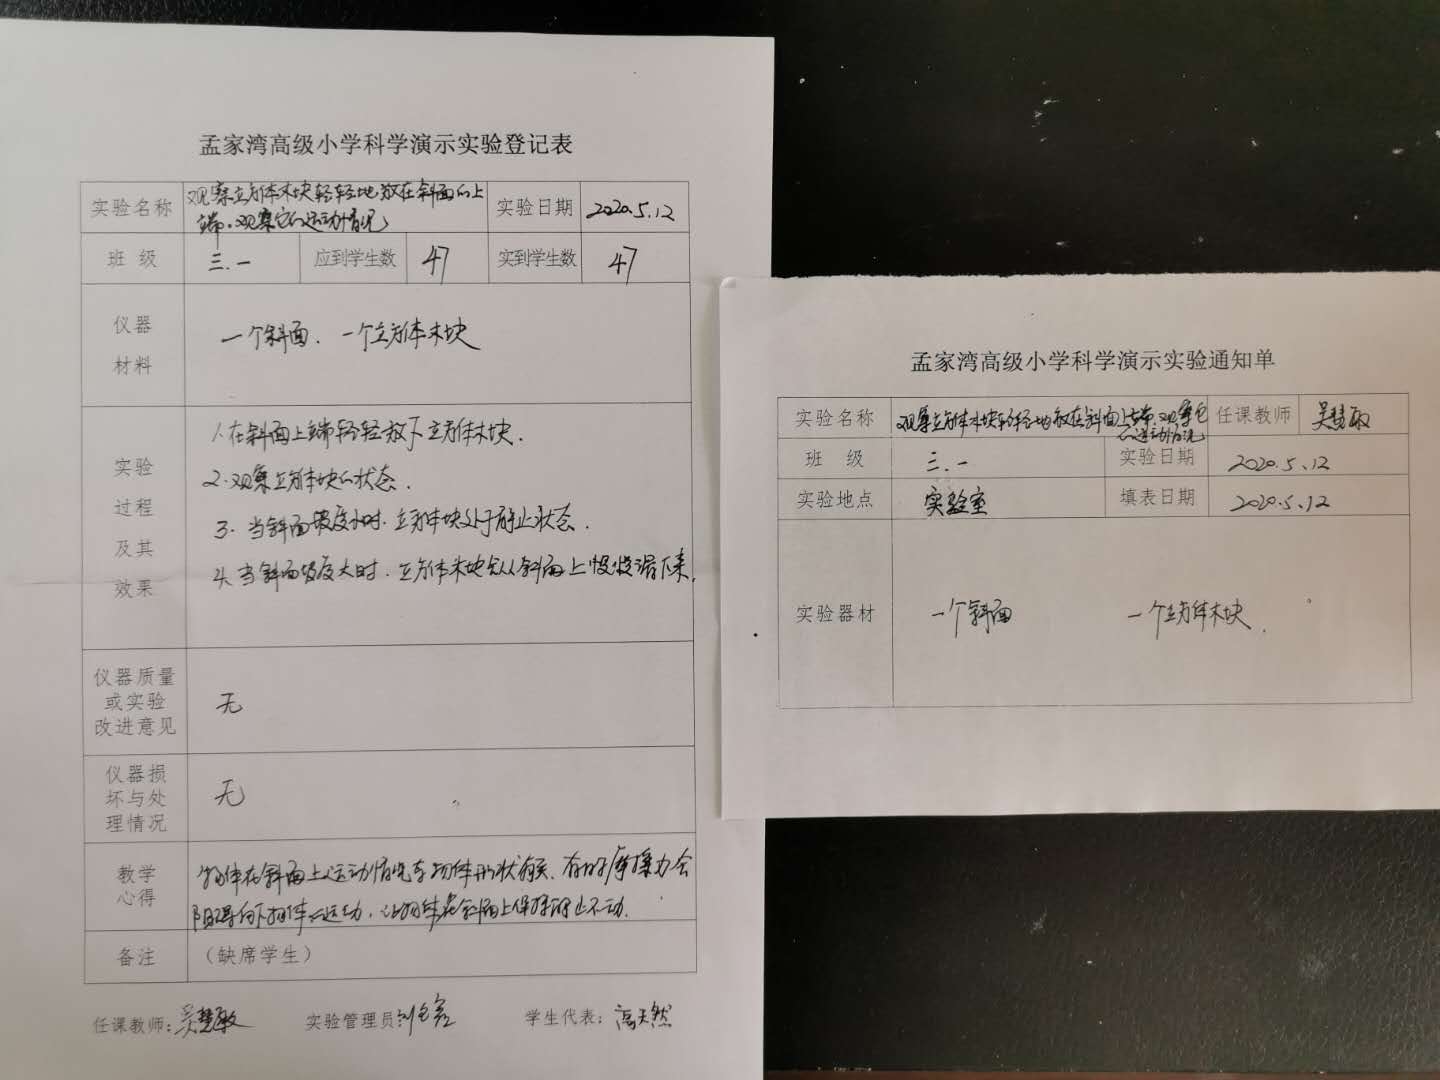 孟家湾高级小学科学演示实验登记表
实验名称 观察立方体木块轻轻地放在斜面的上
端.观察它的运动情况 实验日期 2020.5.12
班 级 三.一 应到学生数 47 实到学生数 47
仪器
材料 一个斜面、一个立方体木块
实验
过程
及其
效果
1.在斜面上端轻轻放下立方体木块.
2.观察立方体块的状态.
3.当斜面坡度小时.立方体块处于静止状态.
4.当斜面坡度大时.立方体木块会从斜面上慢慢滑下来.
仪器质量
或实验
改进意见 无
仪器损
坏与处
理情况 无
教学
心得
物体在斜面上运动情况与物体形状有关.有时摩擦力会
阻碍向下物体的运动.让物体在斜面上保持静止不动.
备注 (缺席学生)
任课教师:吴慧敏 实验管理员 学生代表:高天然
孟家湾高级小学科学演示实验通知单
实验名称 观察立方体木块轻轻地放在斜面上端.观察它
的运动情况 任课教师 吴慧敏
班 级 三.一 实验日期 2020.5.12
实验地点 实验室 填表日期 2020.5.12
实验器材 一个斜面 一个立方体木块.